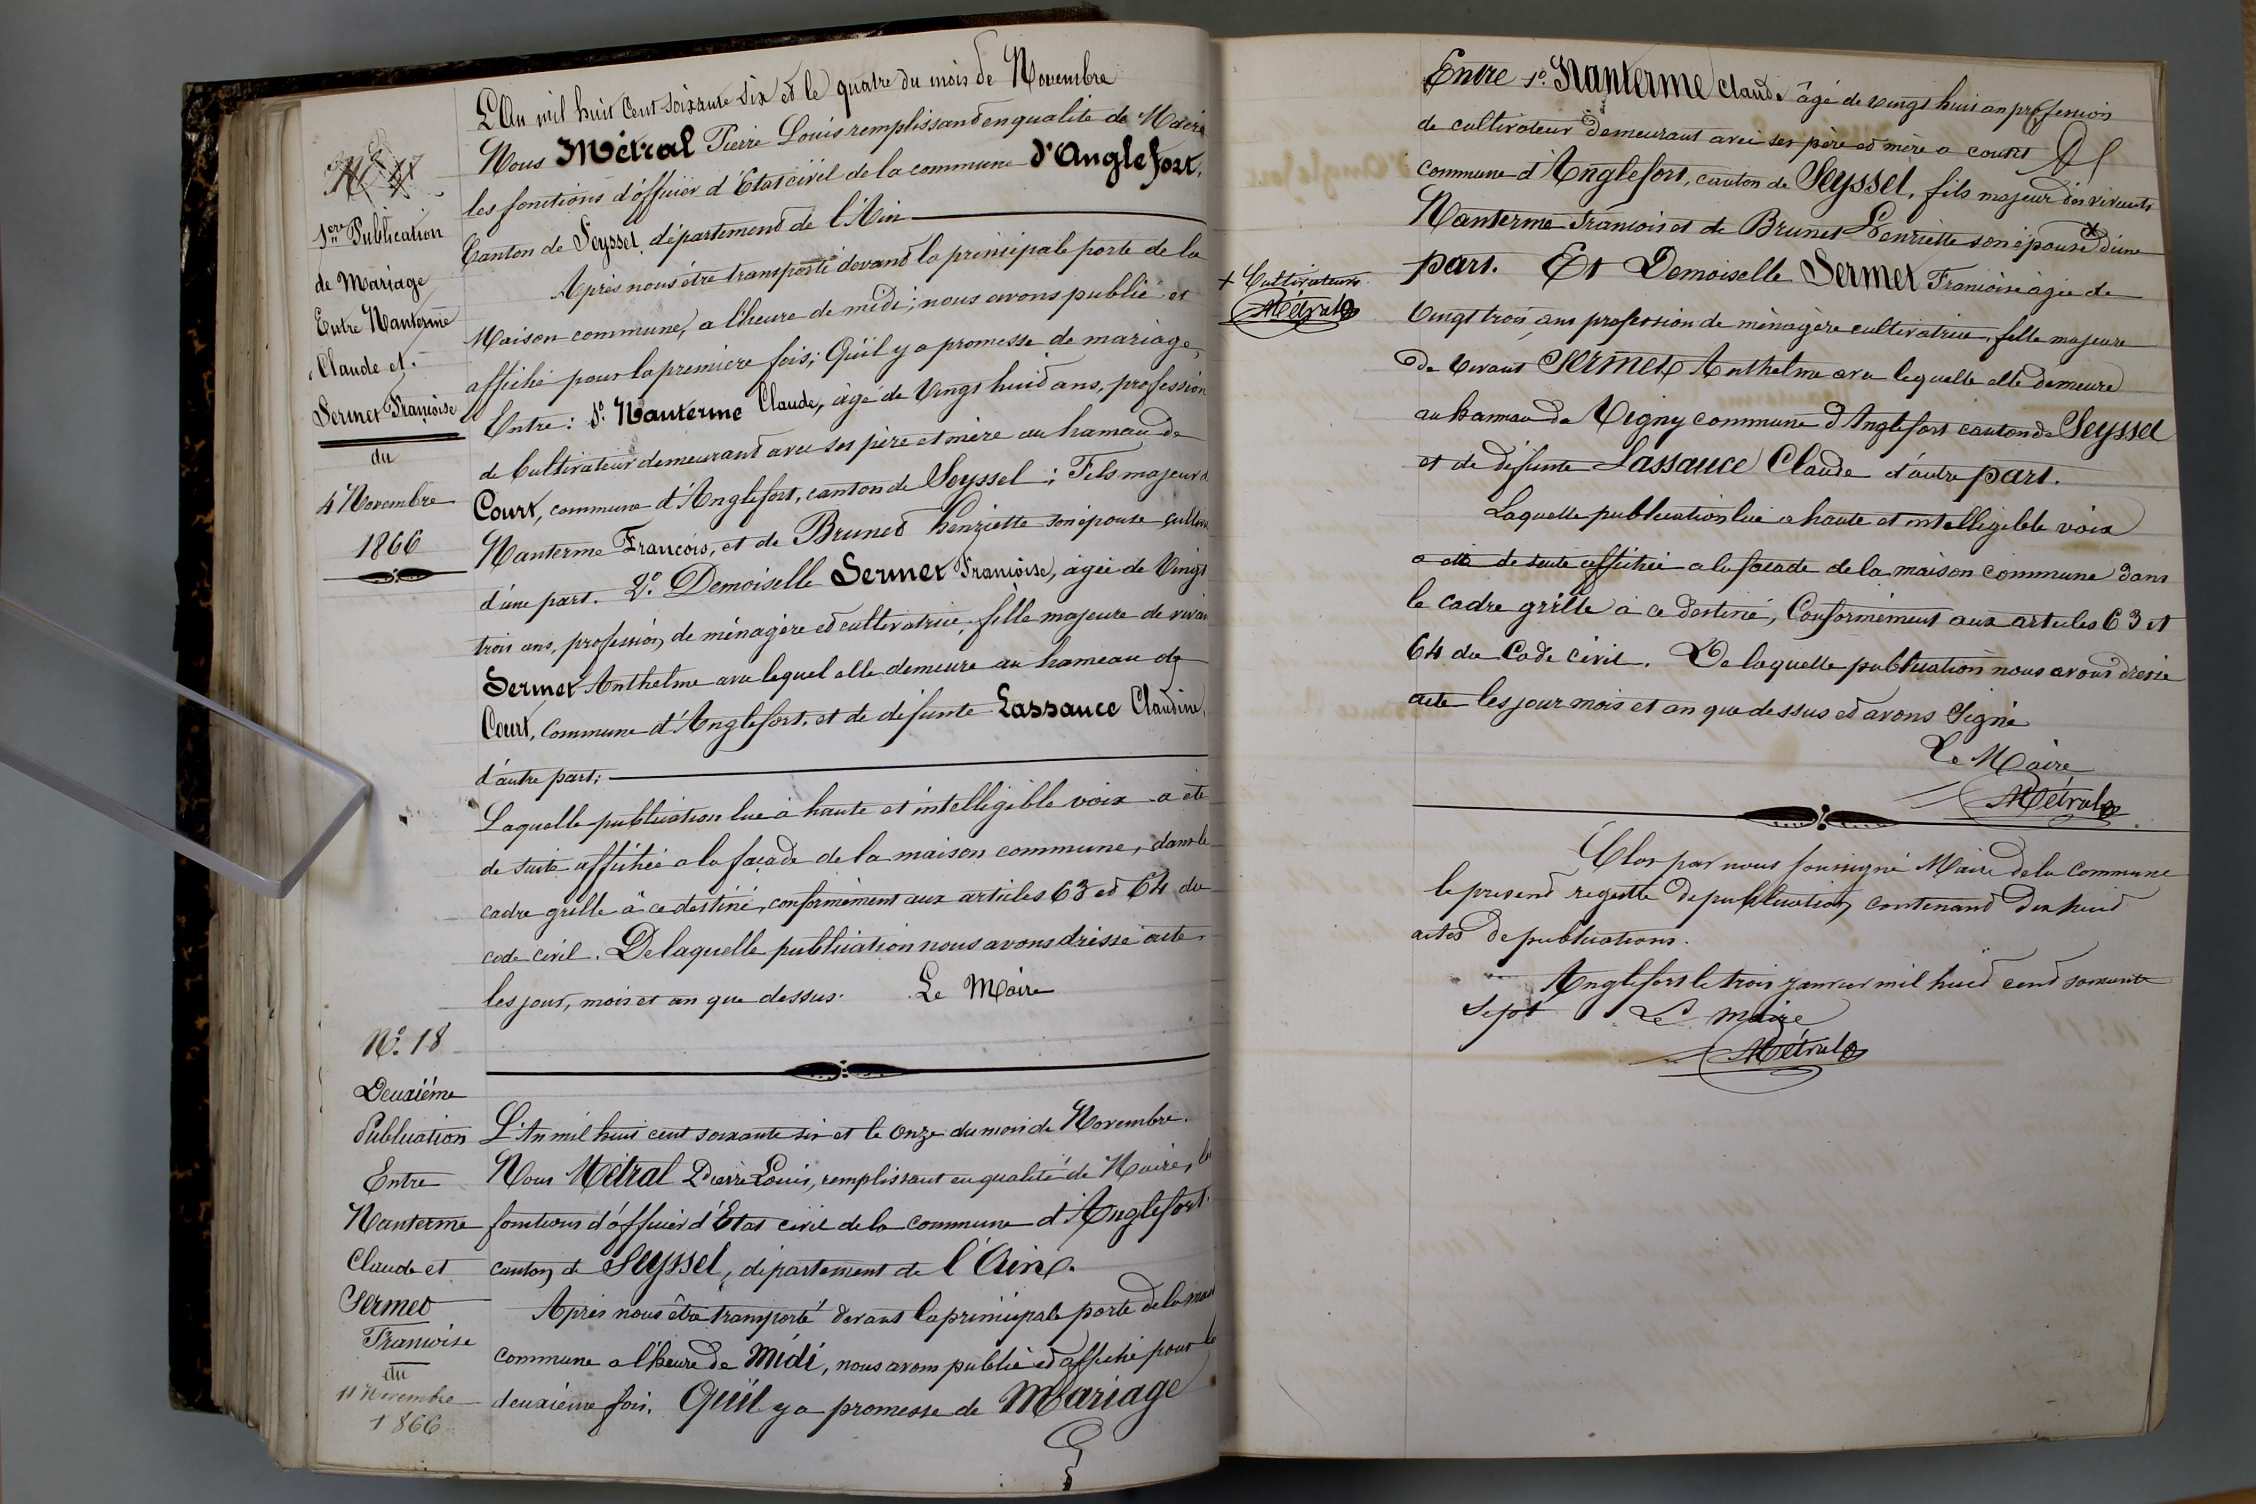 N° 17
1ère Publication
de Mariage
Entre Nanterme
Claude et
Sermet Françoise
du
4 Novembre
1866
L'An mil huit Cent soixante six et le quatre du mois de Novembre
Nous Métral Pierre Louis remplissant en qualité de Maire
les fonctions d'officier d'Etat civil de la commune d'Anglefort,
Canton de Seyssel, département de l'Ain
Après nous être transporté devant la principale porte de la
Maison commune, a l'heure de midi; nous avons publié et
affiché pour la première fois; Qu'il y a promesse de mariage,
Entre: 1° Nanterme Claude, âgé de Vingt huit ans, profession
de Cultivateur demeurant avec ses père et mère au hameau de
Court, commune d'Anglefort, canton de Seyssel; Fils majeur d
Nanterme François, et de Brunet henriette son épouse cultiv
d'une part. 2° Demoiselle Sermet Françoise, agée de Vingt
trois ans, profession de ménagère et cultivatrice, fille majeure de vivan
Sermet Anthelme avec lequel elle demeure au hameau de
Court, Commune d'Anglefort, et de défunte Lassauce Claudine,
d'autre part;
Laquelle publication lue à haute et intelligible voix a été
de suite affichée a la façade de la maison commune, dans le
cadre grillé à ce destiné, conformément aux articles 63 et 64 du
code civil. De laquelle publication nous avons dressé acte
les jour, mois et an que dessus. Le Maire
N° 18
Deuxième
Publication
Entre
Nanterme
Claude et
Sermet
Françoise
du
11 Novembre
1866
L'An mil huit cent soixante six et le Onze du mois de Novembre.
Nous Métral Pierre Louis, remplissant en qualité de Maire, les
fonctions d'officier d'Etat civil de la commune d'Anglefort
canton de Seyssel, département de l'Ain.
Après nous être transporté devant la principale porte de la mai
commune a l'heure de Midi, nous avons publié et affiché pour la
deuxième fois. Qu'il y a promesse de Mariage
Entre 1° Nanterme Claude âgé de vingt huit an profession
de cultivateur demeurant avec ses père et mère a court
commune d'Anglefort, canton de Seyssel, fils majeur des vivants
Nanterme Francois et de Brunet Henriette son épouse x d'une
x Cultivateurs
Métral
part. Et Demoiselle Sermet Francoise agée de
Vingt trois ans profession de ménagère cultivatrice, fille majeure
de vivant Sermet Anthelme avec lequelle elle demeure
au hameau de Vigny commune d'Anglefort canton de Seyssel
et de défunte Lassauce Claude d'autre part.
Laquelle publication lue a haute et intelligible voix
a été de suite affichée a la facade de la maison commune dans
le cadre grillé à ce destiné, Conformément aux articles 63 et
64 du Code civil. De laquelle publication nous avons dressé
acte les jour mois et an que dessus et avons Signé
Le Maire
Métral
Clos par nous soussigné Maire de la Commune
le présent registre de publication contenant dix huit
actes de publications.
Anglefort le trois janvier mil huit cent soixante
Sept Le maire
Métral